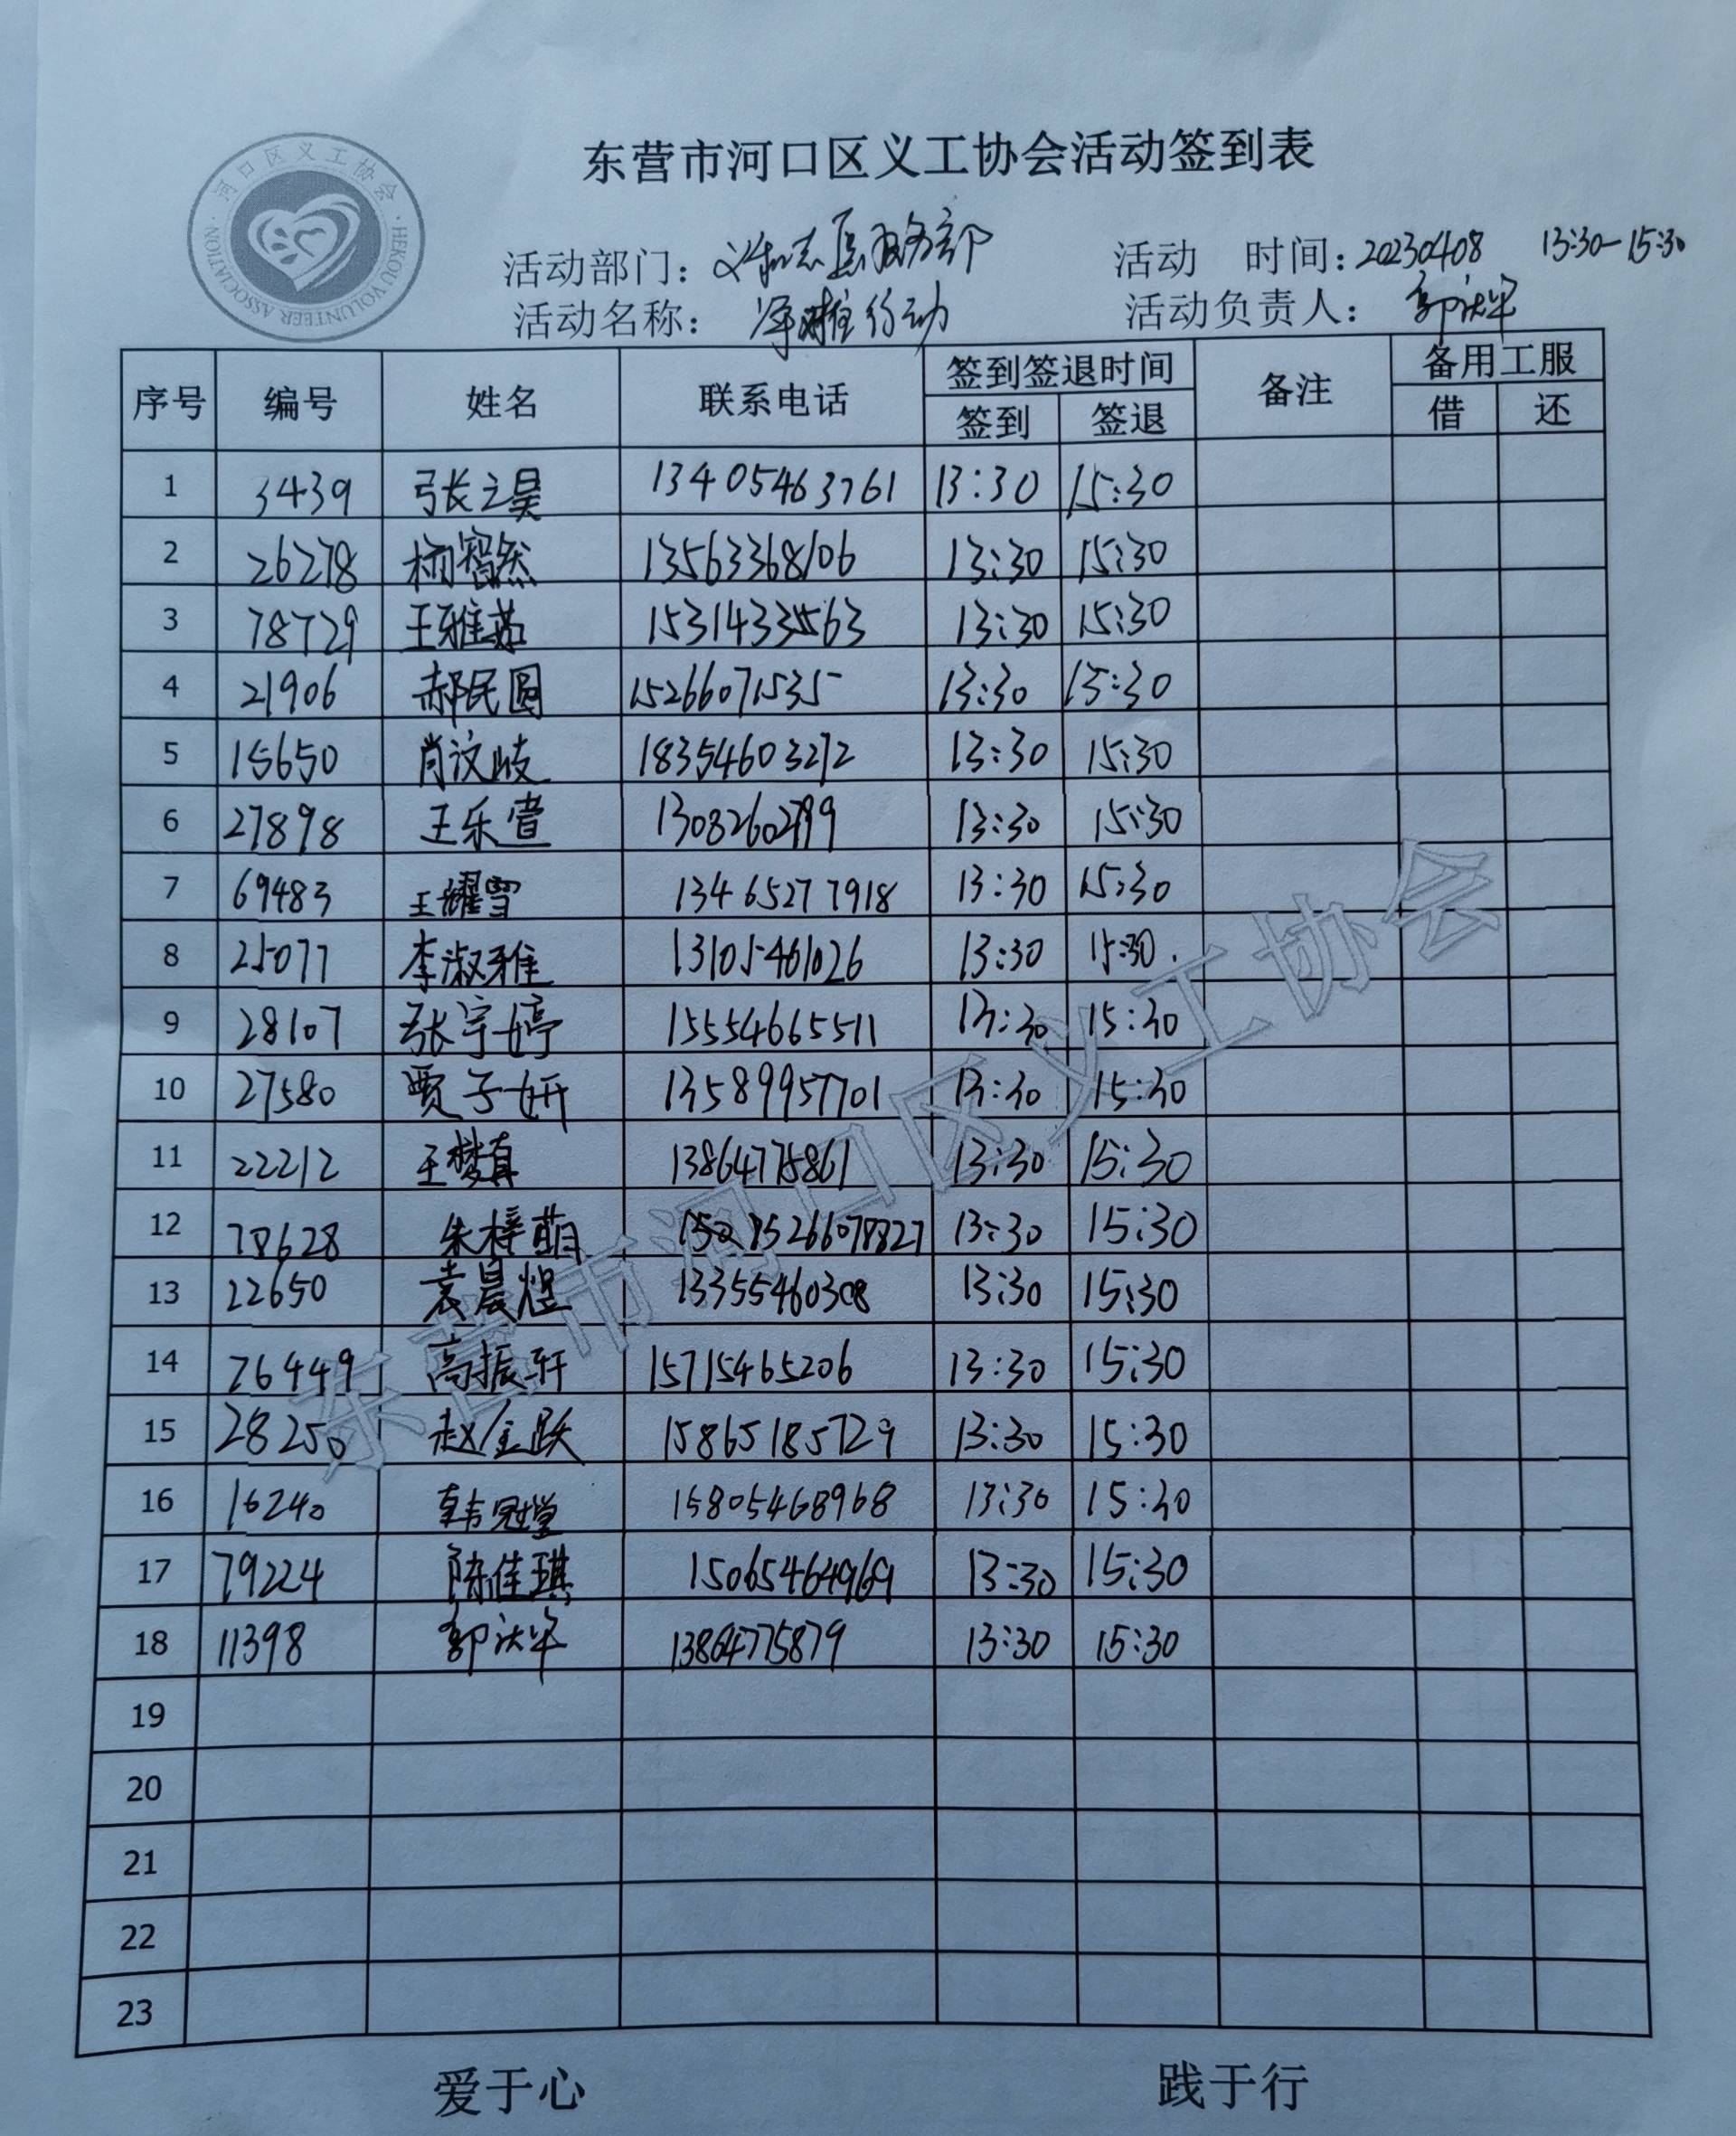 东营市河口区义工协会活动签到表
河口区义工协会
HEKOU VOLUNTEER ASSOCIATION
活动部门： 服务部 活动 时间：20230408 13:30-15:30
活动名称： 净滩行动 活动负责人： 郭洪军
序号 编号 姓名 联系电话 签到签退时间 备注 备用工服
签到 签退 借 还
1 3439 张之昊 13405463761 13:30 15:30
2 26278 柳智然 13563368106 13:30 15:30
3 78729 王雅茹 15314333563 13:30 15:30
4 21906 郝民圆 15266071535 13:30 15:30
5 15650 肖汶岐 18354603272 13:30 15:30
6 27898 王乐萱 13:30 15:30
7 69483 王耀雪 13465277918 13:30 15:30
8 25077 李淑雅 13105461026 13:30 15:30
9 28107 张宇婷 15554665511 13:30 15:30
10 27580 贾子妍 13589957701 13:30 15:30
11 22212 王梦真 13864775861 13:30 15:30
12 78628 朱梓萌 15266078827 13:30 15:30
13 22650 袁晨煜 13355460308 13:30 15:30
14 26449 高振轩 15715465206 13:30 15:30
15 28250 赵金跃 15865185729 13:30 15:30
16 16240 韩冠堂 15805468968 13:30 15:30
17 79224 陈佳琪 15065464969 13:30 15:30
18 11398 郭洪军 13864775879 13:30 15:30
19
20
21
22
23
东营市河口区义工协会
爱于心 践于行